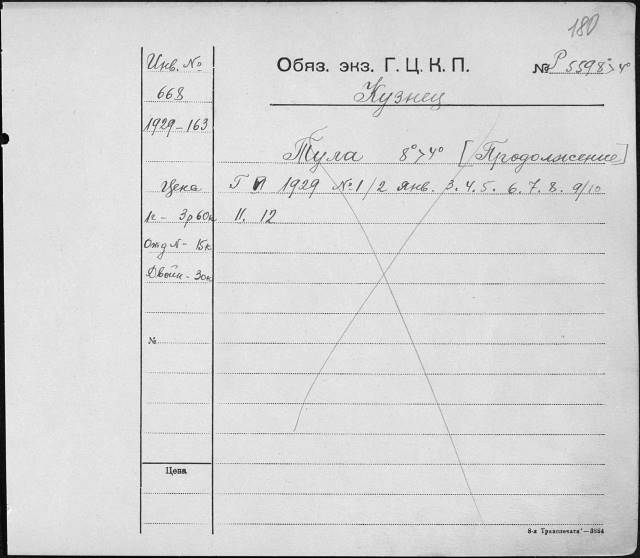 180
Инв. №
Обяз. экз. Г. Ц. К. П.
№ Р 5598 > 4°
668
Кузнец
1929-163
Тула 8° > 4° [Продолжение]
Цена
Г 1929 №1/2 янв. 3. 4. 5. 6. 7. 8. 9/10
1г - 3р 60к
11. 12
Отд № - 15к
Двойн - 30к
№
Цена
8-я Транспечати—3854